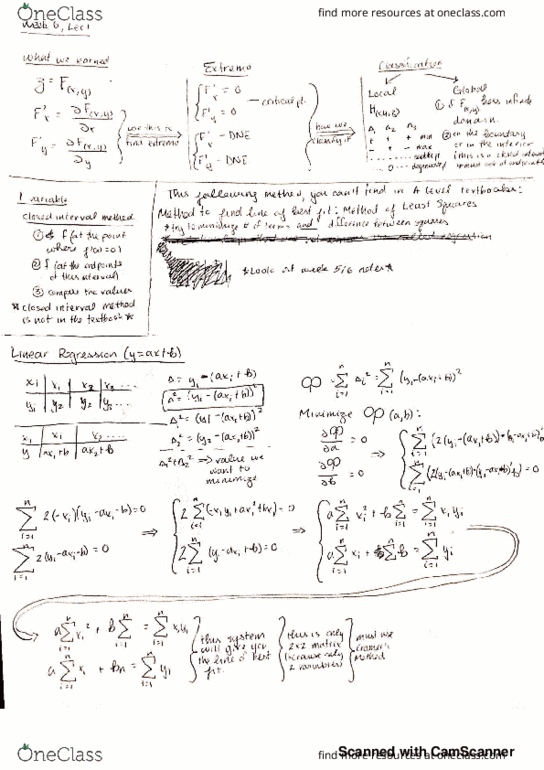 OneClass
find more resources at oneclass.com
Week 6, Lec 1
What we learned
z = F(x,y)
F'x = ∂F(x,y)/∂x
F'y = ∂F(x,y)/∂y
use this to find extrema
Extrema
F'x = 0
F'y = 0
critical pt.
F'x - DNE
F'y - DNE
how we classify it
Classification
Local
H(x,y)
Δ1 Δ2 Δ3
+ + + min
- + - max
Global
① if F(x,y) has
domain.
② on the boundary
or in the interior
1 variable
closed interval method
① f at the point
where f'(x)=0
② f (at the endpoints
of this interval)
③ compare the values
* closed interval method
is not in the textbook *
This following method, you can't find in A level textbooks:
Method to find line of best fit: Method of Least Squares
* try to minimize # of terms and difference between squares
* Look at week 5/6 notes *
Linear Regression (y=ax+b)
xi | x1 | x2 | x3 ....
yi | y2 | y2 | y3 ....
xi | xi | x2 .....
y | ax1+b | ax2+b
Δ = yi - (axi+b)
Δ² = (yi - (axi+b))²
Δ1² = (y1 - (ax1+b))²
Δ2² = (y2 - (ax2+b))²
Δ1² + Δ2² ⟹ value we want to minimize
φ = Σ Δi² = Σ (yi - (axi+b))²
Minimize φ (a,b):
∂φ/∂a = 0
∂φ/∂b = 0
Σ 2(-xi)(yi - axi - b) = 0
Σ 2(yi - axi - b) = 0
⟹
2 Σ (-xiyi + axi² + bxi) = 0
2 Σ (yi - axi + b) = 0
⟹
a Σ xi² + b Σ = Σ xiyi
a Σ xi + Σ b = Σ yi
a Σ xi² + b Σ = Σ xiyi
a Σ xi + bn = Σ yi
this system will give you the line of best fit.
this is only 2x2 matrix (because only 2 variables)
must use cramer's method
OneClass
find more resources at oneclass.com
Scanned with CamScanner